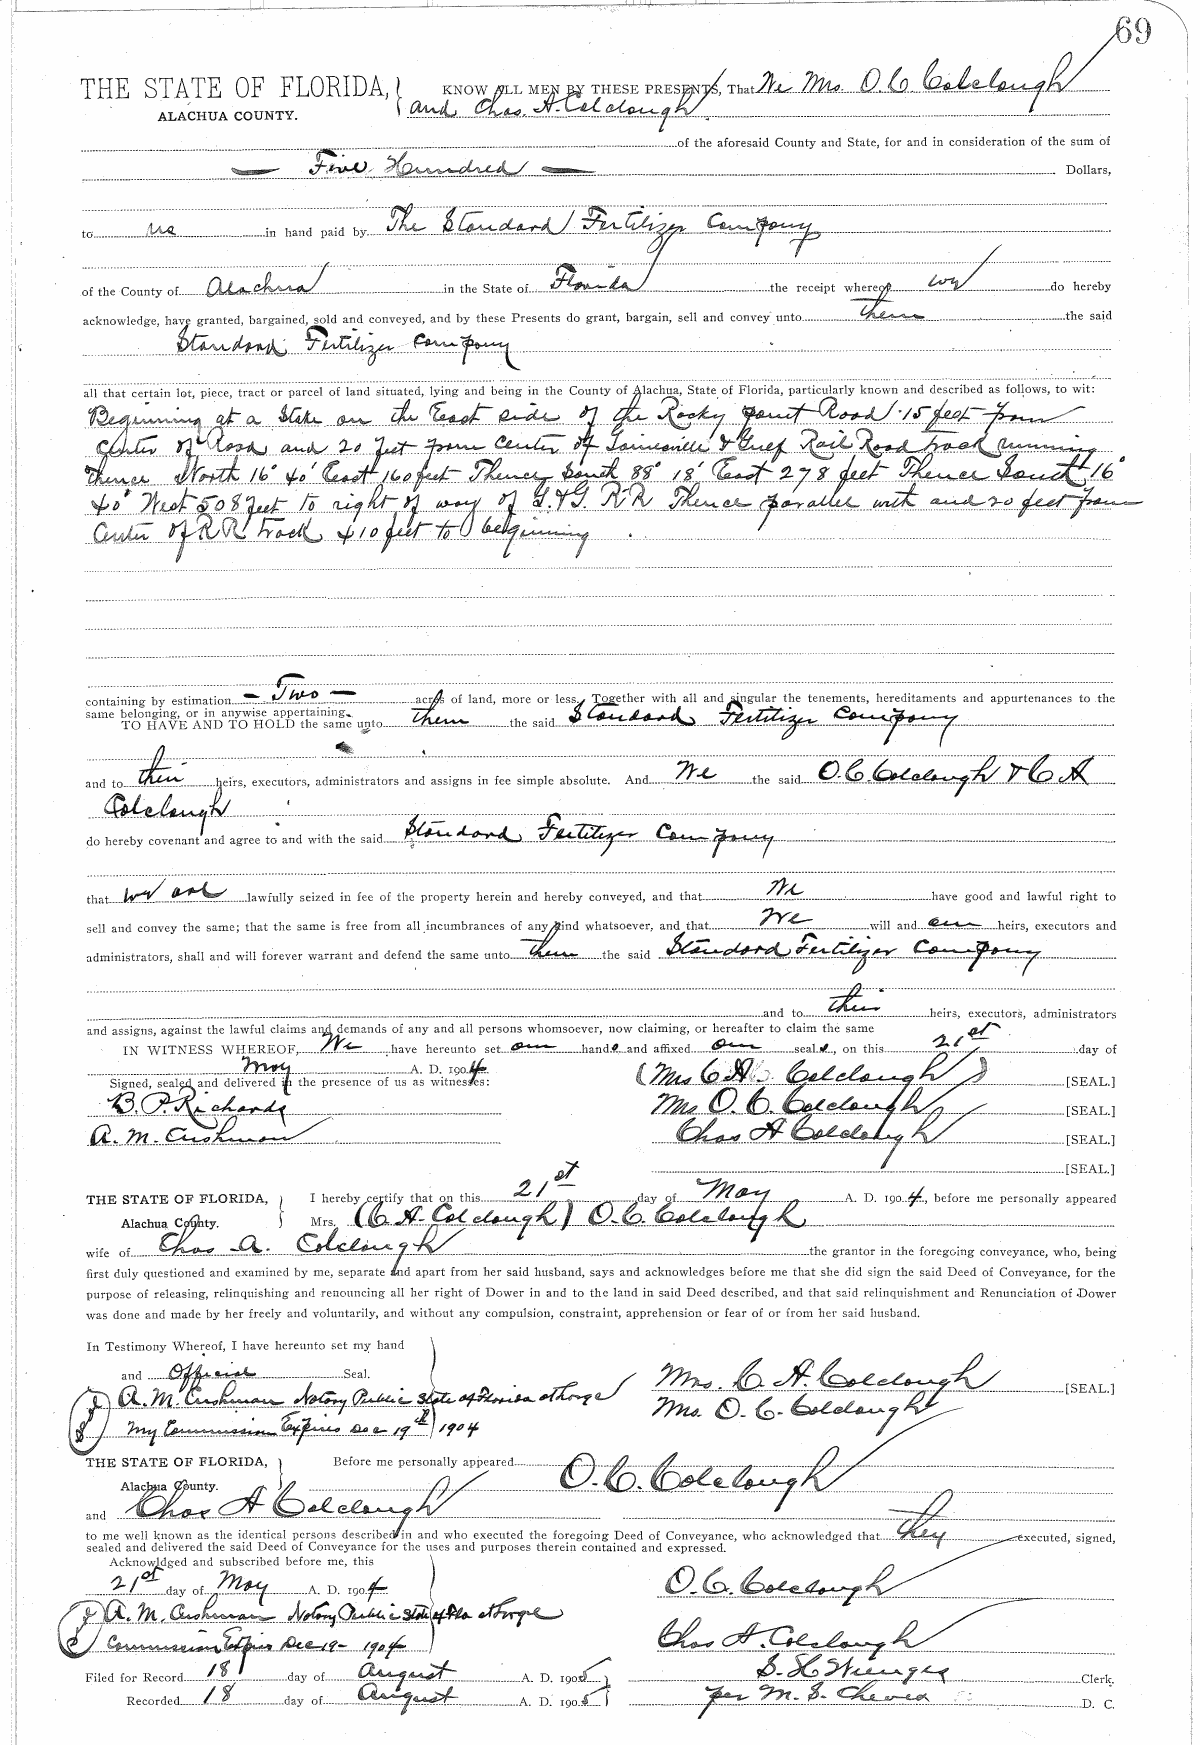 69
THE STATE OF FLORIDA, KNOW ALL MEN BY THESE PRESENTS, That We Mrs. O C Colclough
ALACHUA COUNTY. and Chas. A. Colclough
of the aforesaid County and State, for and in consideration of the sum of
— Five Hundred — Dollars,
to us in hand paid by The Standard Fertilizer Company
of the County of Alachua in the State of Florida the receipt whereof we do hereby
acknowledge, have granted, bargained, sold and conveyed, and by these Presents do grant, bargain, sell and convey unto them the said
Standard Fertilizer Company
all that certain lot, piece, tract or parcel of land situated, lying and being in the County of Alachua, State of Florida, particularly known and described as follows, to wit:
Beginning at a Stake on the East side of the Rocky point Road 15 feet from
Center of Road and 20 feet from Center of Gainesville & Gulf Rail Road track running
thence North 16° 40' East 160 feet Thence South 88° 18' East 278 feet Thence South 16°
40' West 508 feet to right of way of G. & G. R R Thence parallel with and 20 feet from
Center of R R track 410 feet to beginning.
containing by estimation — Two — acres of land, more or less, Together with all and singular the tenements, hereditaments and appurtenances to the
same belonging, or in anywise appertaining.
TO HAVE AND TO HOLD the same unto them the said Standard Fertilizer Company
and to their heirs, executors, administrators and assigns in fee simple absolute. And We the said O. C. Colclough & C A
Colclough
do hereby covenant and agree to and with the said Standard Fertilizer Company
that we are lawfully seized in fee of the property herein and hereby conveyed, and that We have good and lawful right to
sell and convey the same; that the same is free from all incumbrances of any kind whatsoever, and that We will and our heirs, executors and
administrators, shall and will forever warrant and defend the same unto them the said Standard Fertilizer Company
and to their heirs, executors, administrators
and assigns, against the lawful claims and demands of any and all persons whomsoever, now claiming, or hereafter to claim the same
IN WITNESS WHEREOF, We have hereunto set our hands and affixed our seals, on this 21st day of
May A. D. 1904
Signed, sealed and delivered in the presence of us as witnesses: (Mrs C A. Colclough) [SEAL.]
B. P. Richards Mrs O. C. Colclough [SEAL.]
A. M. Cushman Chas A Colclough [SEAL.]
[SEAL.]
THE STATE OF FLORIDA, I hereby certify that on this 21st day of May A. D. 1904, before me personally appeared
Alachua County. Mrs. (C A. Colclough) O. C. Colclough
wife of Chas A. Colclough the grantor in the foregoing conveyance, who, being
first duly questioned and examined by me, separate and apart from her said husband, says and acknowledges before me that she did sign the said Deed of Conveyance, for the
purpose of releasing, relinquishing and renouncing all her right of Dower in and to the land in said Deed described, and that said relinquishment and Renunciation of Dower
was done and made by her freely and voluntarily, and without any compulsion, constraint, apprehension or fear of or from her said husband.
In Testimony Whereof, I have hereunto set my hand
and Official Seal. Mrs. C. A. Colclough [SEAL.]
A. M. Cushman Notary Public State of Florida at Large Mrs. O. C. Colclough
My Commission Expires Dec 19th 1904
THE STATE OF FLORIDA, Before me personally appeared O. C. Colclough
Alachua County.
and Chas A Colclough
to me well known as the identical persons described in and who executed the foregoing Deed of Conveyance, who acknowledged that they executed, signed,
sealed and delivered the said Deed of Conveyance for the uses and purposes therein contained and expressed.
Acknowldged and subscribed before me, this
21st day of May A. D. 1904 O. C. Colclough
A. M. Cushman Notary Public State of Fla at Large
Commission Expires Dec 19- 1904 Chas A. Colclough
Filed for Record 18 day of August A. D. 1905 S. H. Wienges Clerk.
Recorded 18 day of August A. D. 1905 per M. S. Cheves D. C.